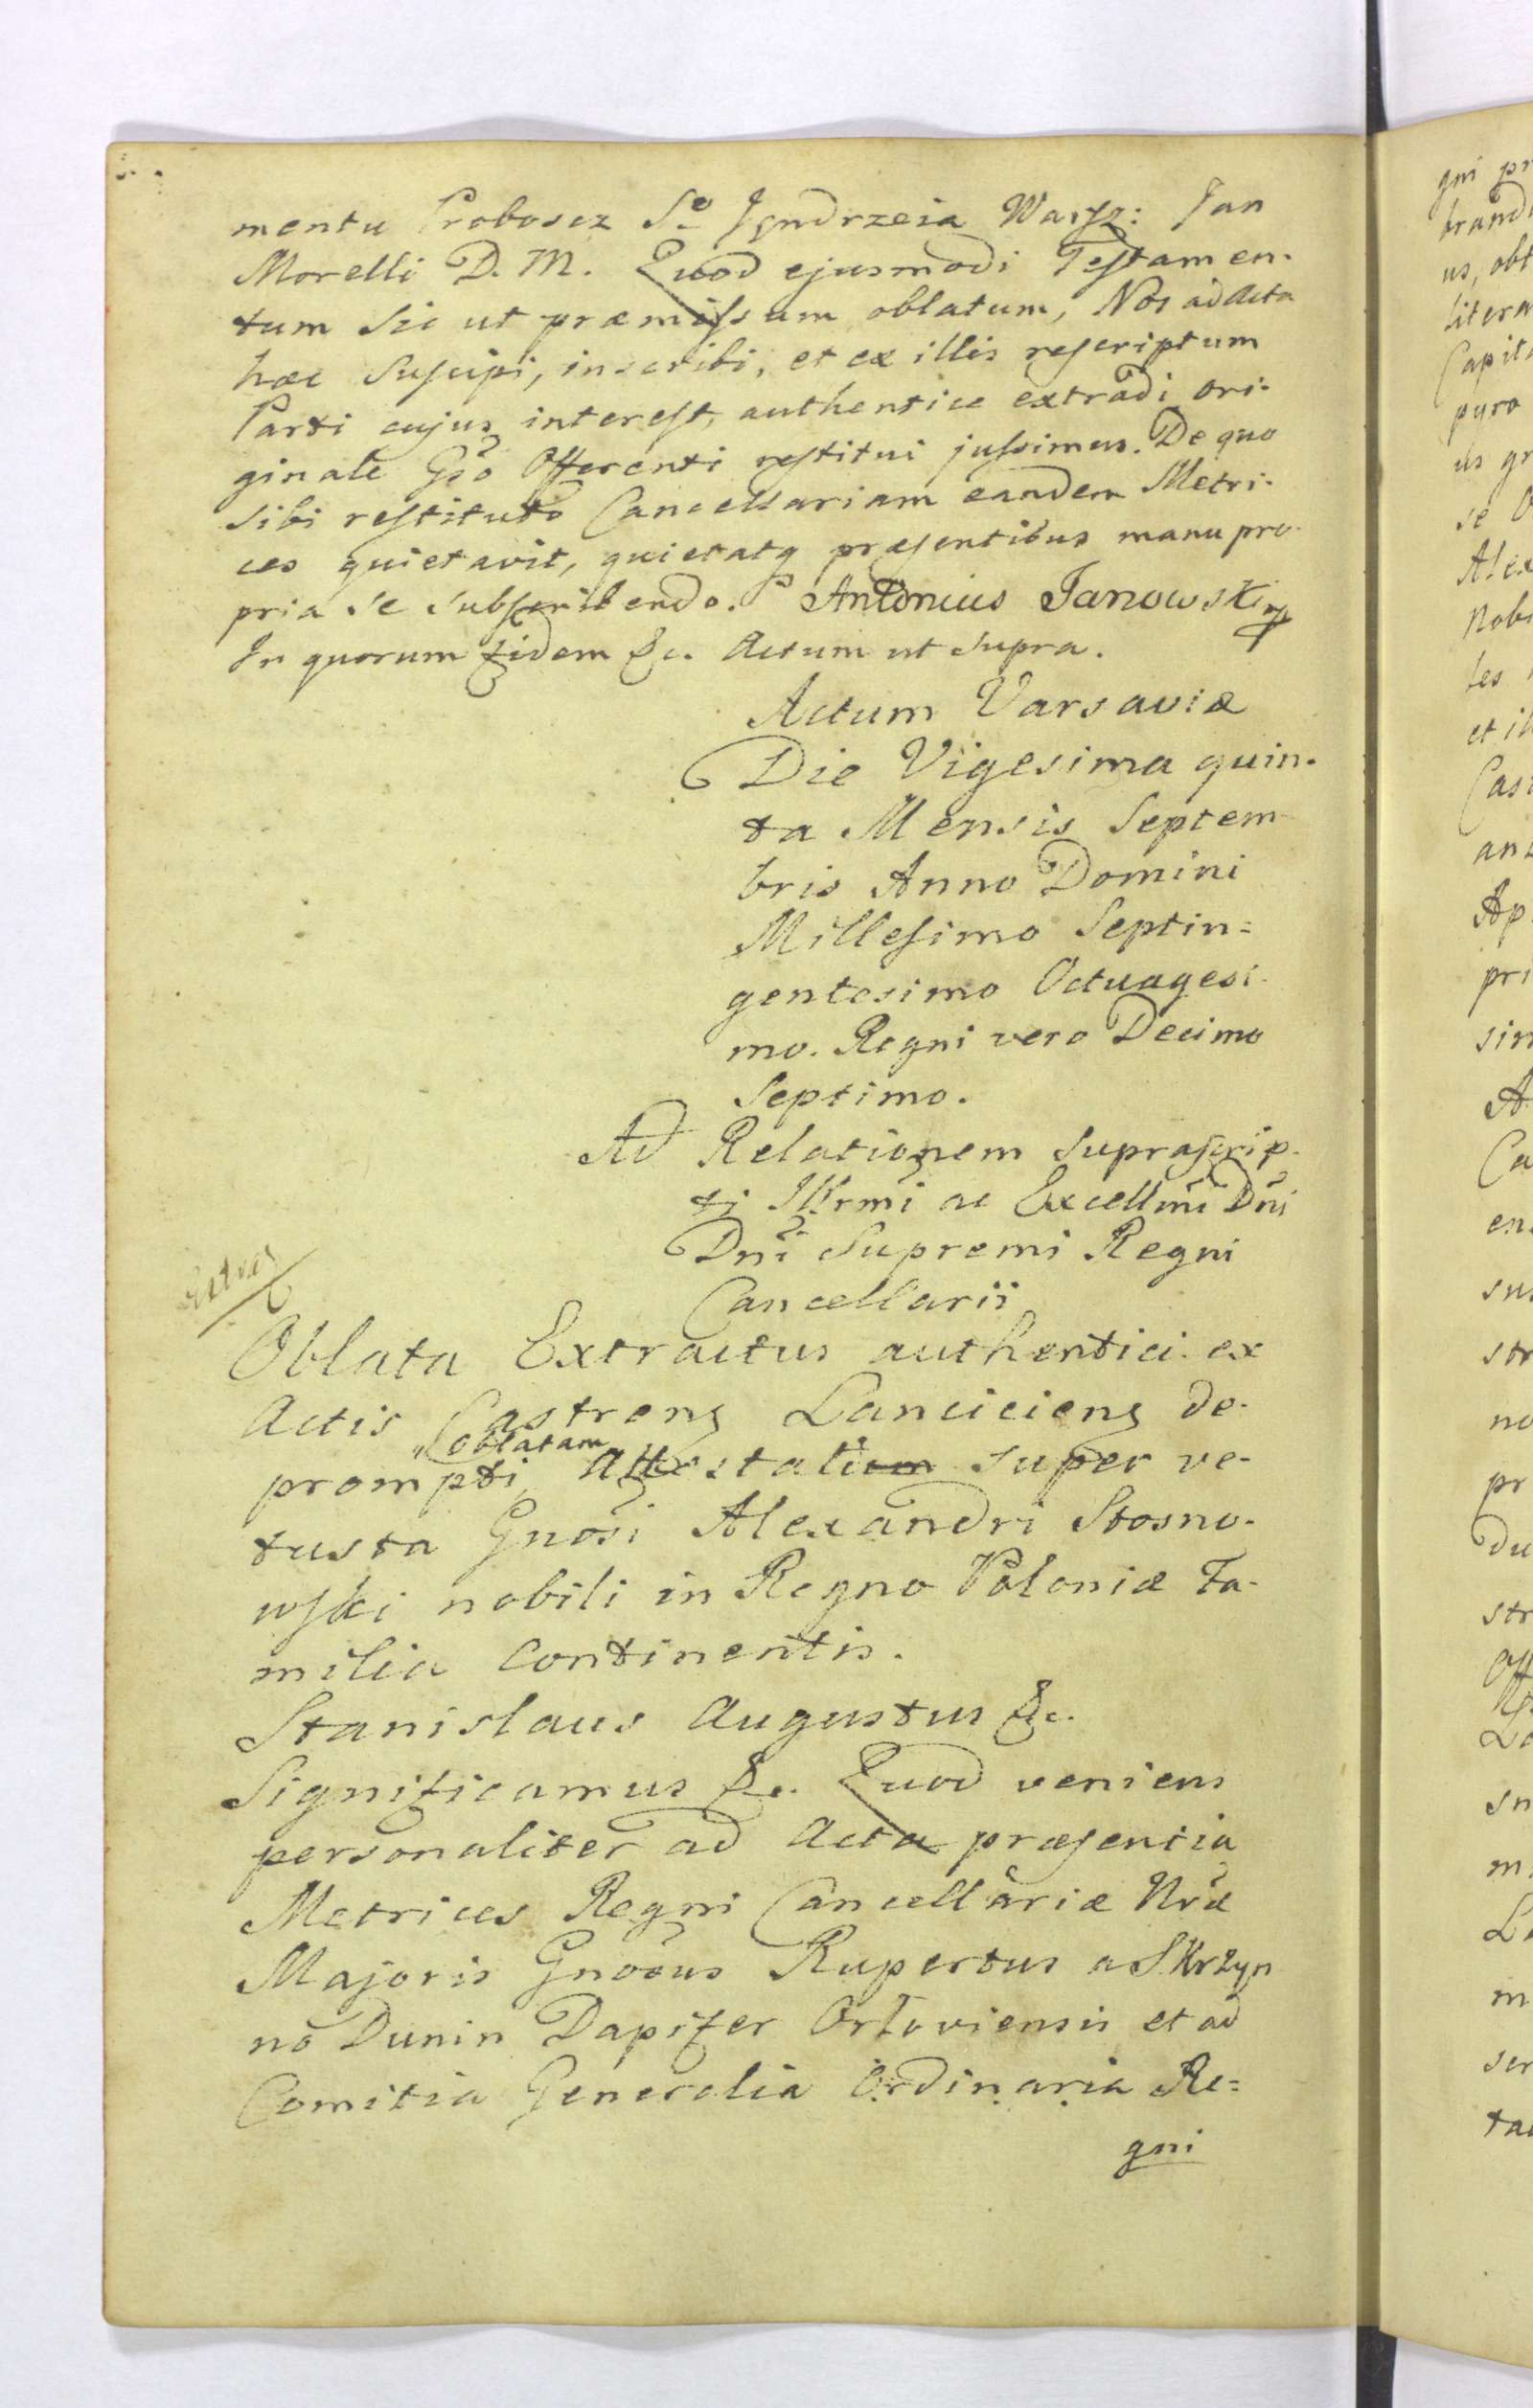 mentu Proboscz So Jędrzeia Warsz: Jan
Morelli D. M. Quod ejusmodi Testamen-
tum sic ut præmissum oblatum, Nos ad Acta
hæc suscipi, inscribi, et ex illis rescriptum
Parti cujus interest, authentice extradi ori-
ginale Gso Offerenti restitui jussimus. De quo
sibi restituto Cancellariam eandem Metri-
ces quietavit, quietatq præsentibus manu pro-
pria se subscribendo. Antonius Janowski mp
In quorum fidem &c. Actum ut supra.
Actum Varsaviæ
Die Vigesima quin-
ta Mensis Septem-
bris Anno Domini
Millesimo Septin=
gentesimo Octuagesi-
mo. Regni vero Decimo
Septimo.
Ad Relationem suprascrip-
ti Illrmi ac Excellmi Dni
Dni Supremi Regni
Cancellarii
Oblata Extractus authentici ex
Actis Castrens Lanciciens de-
oblatam
prompti Attestatium super ve-
tusta Gnosi Alexandri Stosno-
wski nobili in Regno Poloniæ Fa-
milia continentis.
Stanislaus Augustus &c.
Significamus &c. Quod veniens
personaliter ad Acta præsentia
Metrices Regni Cancellariæ Nræ
Majoris Gnosus Rupertus a Skrzyn
no Dunin Dapifer Orłoviensis et ad
Comitia Generalia Ordinaria Re=
gni